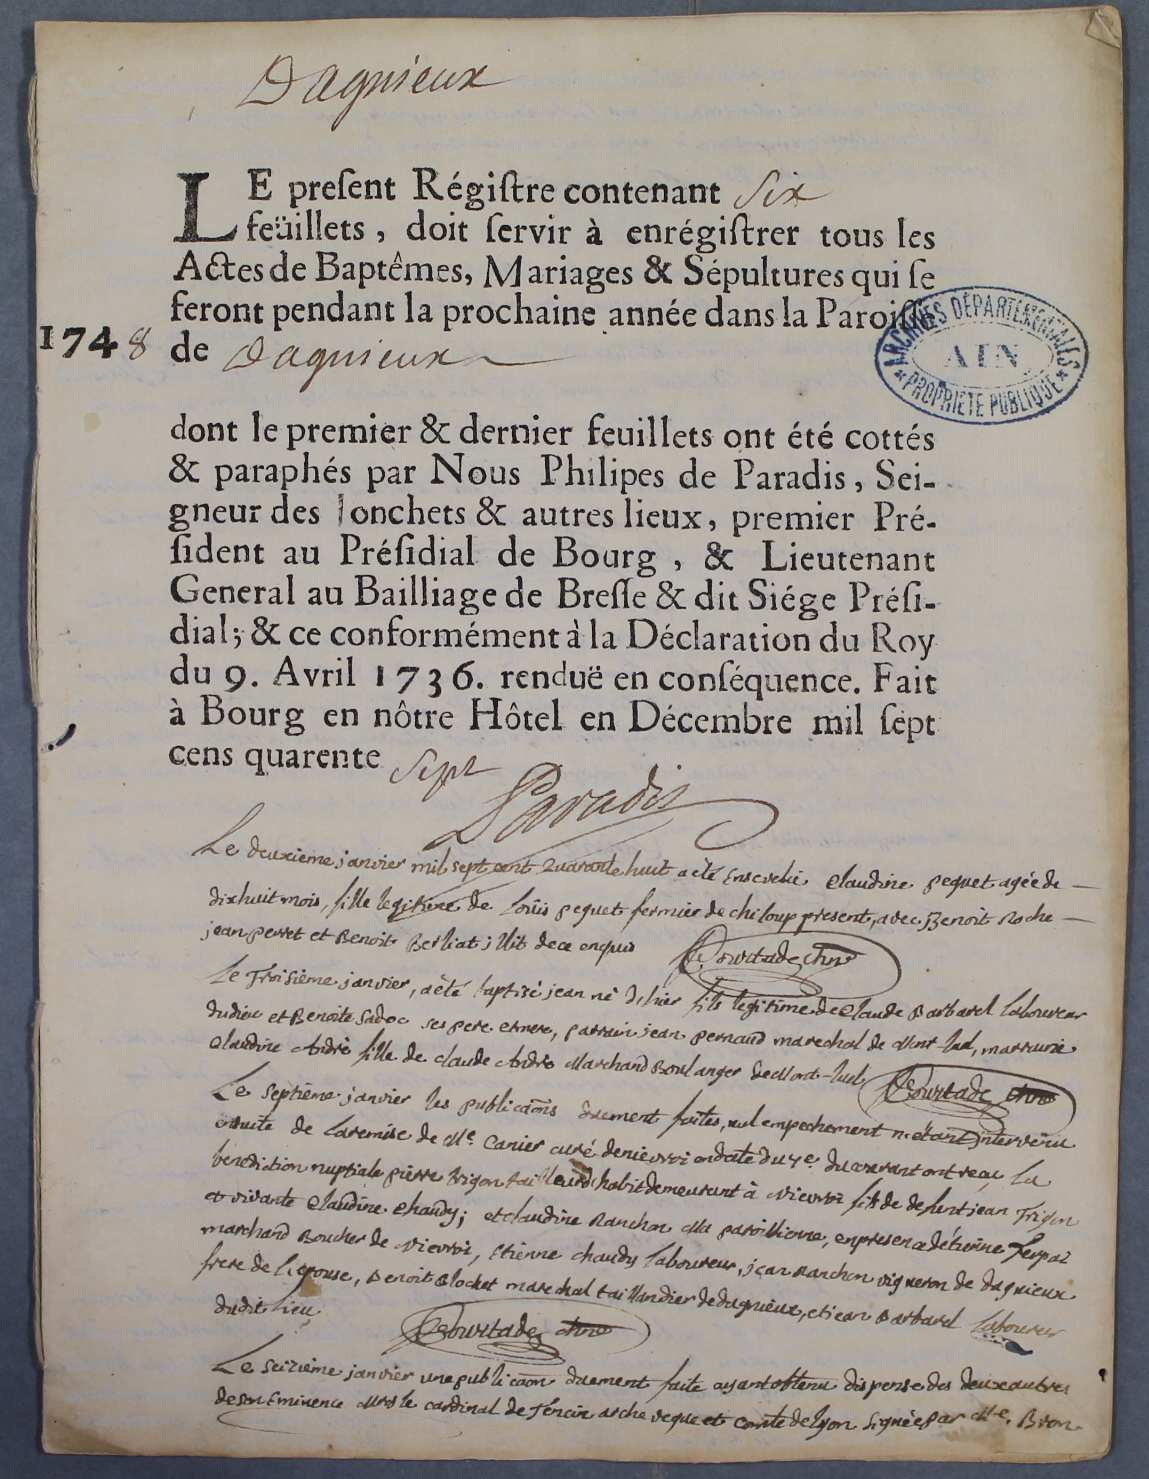 Dagnieux
LE preſent Régiſtre contenant Six
feüillets, doit ſervir à enrégiſtrer tous les
Actes de Baptêmes, Mariages & Sépultures qui ſe
feront pendant la prochaine année dans la Paroiſſe
1748 de Dagnieux
ARCHIVES DÉPARTEMENTALES
AIN
* PROPRIÉTÉ PUBLIQUE *
dont le premier & dernier feuillets ont été cottés
& paraphés par Nous Philipes de Paradis, Sei-
gneur des Jonchets & autres lieux, premier Pré-
ſident au Préſidial de Bourg, & Lieutenant
General au Bailliage de Breſſe & dit Siége Préſi-
dial; & ce conformément à la Déclaration du Roy
du 9. Avril 1736. renduë en conſéquence. Fait
à Bourg en nôtre Hôtel en Décembre mil ſept
cens quarente Sept
Paradis
Le deuxieme janvier mil sept cent quarante huit a été Ensevelie Claudine pequet agée de
dixhuit mois, fille legitime de Loüis pequet fermier de chiloup present, avec Benoit Roche
jean perret et Benoit Berliat illit de ce enquis Courtade
Le Troisième janvier, a été baptisé jean né d'hier fils legitime de Claude Barbarel Laboureur
dudieu et Benoite Sadoc ses pere et mere, parrain jean pernaud marechal de Mont-luel, marraine
Claudine André fille de claude André Marchand Boulanger de Mont-luel Courtade
Le septième janvier les publicaons duement faites, nul empechement n'etant intervenu
ensuite de la remise de Me Canier curé de nievroi en date du 4e. du courant ont reçu la
benediction nuptiale pierre Trigon tailleur d'habit demeurant à Nievroi fils de defunt jean Trigon
et vivante Claudine Chaudy; et claudine Ranchon Ma paroissienne, en presence d'etienne
marchand Boucher de Nievroi, Etienne chaudy Laboureur, jean Ranchon vigneron de dagnieux
frere de l'epouse, Benoit Blochet marechal taillandier de dagnieux, et jean Barbarel Laboureur
dudit lieu Courtade
Le seizième janvier une publicaon duement faite ayant obtenu dispense des deux autres
de son Eminence Mgr le cardinal de Tencin archeveque et comte de Lyon signée par Me. Bron